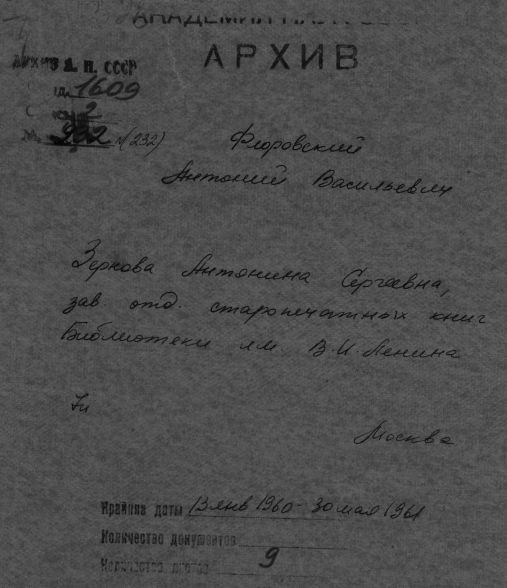 АКАДЕМИЯ НАУК СССР
АРХИВ
АРХИВ А. Н. СССР
1609
2
932 п(232)
Флоровский
Антоний Васильевич
Зернова Антонина Сергеевна,
зав отд. старопечатных книг
Библиотеки им. В.И. Ленина
Москва
Крайние даты 13 янв 1960 - 30 мая 1961
Количество документов
Количество листов 9